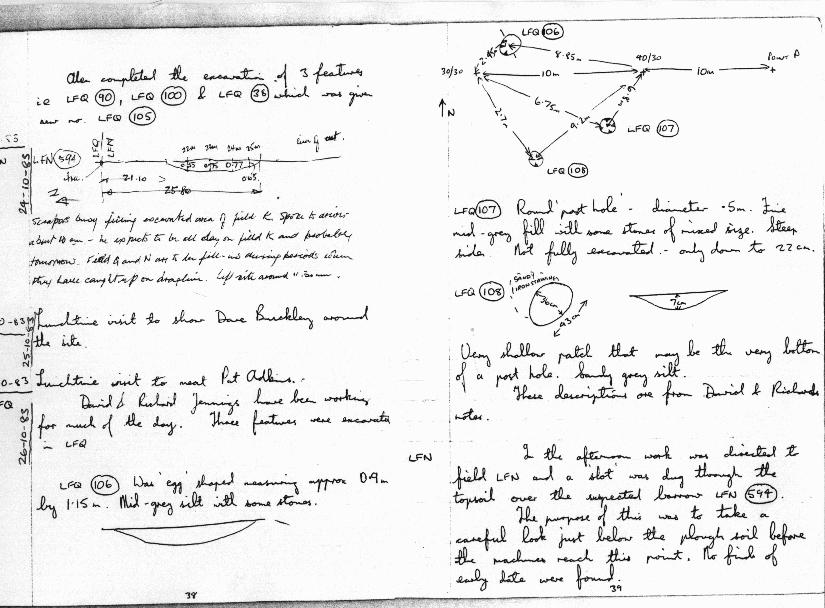 Also completed the excavation of 3 features
i.e LFQ 90, LFQ 100 & LFQ 38 which was given
new no. LFQ 105
LFQ
LFN
LFN 594
22m 23m 24m 25m
0.77
0.65
21.10
25.80
N
24-10-83
Scrapers busy filling excavated area of field K. Spoke to driver
about 10 am - he expects to be all day on field K and probably
tomorrow. Field Q and N are to be fill-ins during periods when
they have caught up on dragline. Left site around
25-10-83
Lunchtime visit to show Dave Buckley around
the site.
Lunchtime visit to meet Pat Adkins.
26-10-83
David & Richard Jennings have been working
for much of the day. Three features were excavated
in LFQ
LFQ 106 Was 'egg' shaped measuring approx 0.4m
by 1.15m. Mid-grey silt with some stones.
38
LFQ 106
8.85m
30/30
40/30
10m
10m
Point A
N
6.75m
2.7m
LFQ 107
LFQ 108
LFQ 107 Round 'post hole' - diameter .5m. Fine
mid-grey fill with some stones of mixed size. Steep
sides. Not fully excavated - only down to 22cm.
LFQ 108
SANDY
IRONSTAINING
36cm
43cm
7cm
Very shallow patch that may be the very bottom
of a post hole. Sandy grey silt.
These descriptions are from David & Richards
notes.
LFN
In the afternoon work was directed to
field LFN and a 'slot' was dug through the
topsoil over the suspected barrow LFN 594.
The purpose of this was to take a
careful look just below the plough soil before
the machines reach this point. No finds of
early date were found.
39